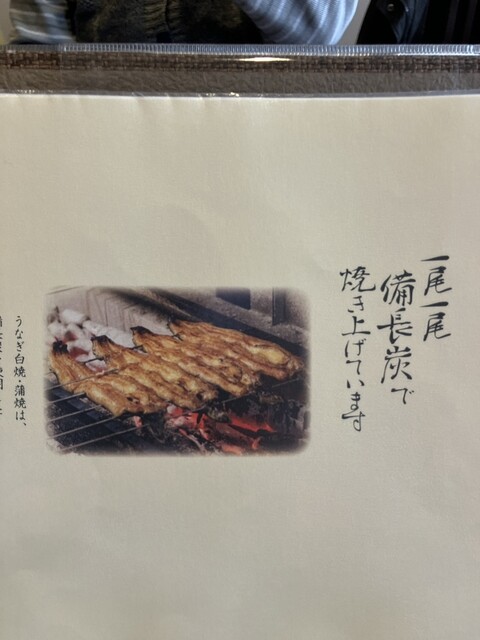 一尾一尾
備長炭で
焼き上げています
うなぎ白焼・蒲焼は、